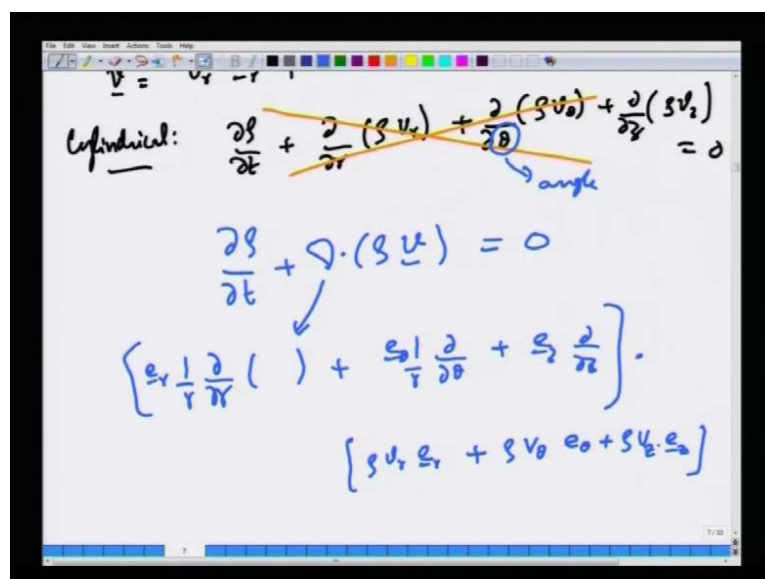 File Edit View Insert Actions Tools Help
v = v_r e_r +
Cylindrical: ∂ρ/∂t + ∂/∂r (ρ v_r) + ∂/∂θ (ρ v_θ) + ∂/∂z (ρ v_z)
= 0
angle
∂ρ/∂t + ∇·(ρ v) = 0
{ e_r 1/r ∂/∂r ( ) + e_θ 1/r ∂/∂θ + e_z ∂/∂z } ·
[ ρ v_r e_r + ρ v_θ e_θ + ρ v_z · e_z ]
7/33
7